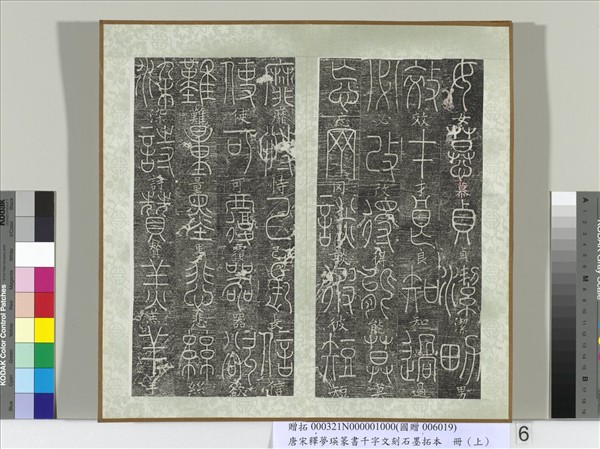 女慕貞潔男
效才良知過
必改得能莫
忘罔談彼短
靡恃己長信
使可覆器欲
難量墨悲絲
染詩讚羔羊
贈拓 000321N000001000(國贈 006019)
唐宋釋夢瑛篆書千字文刻石墨拓本 冊(上)
6
KODAK Color Control Patches
Kodak
A
M
B